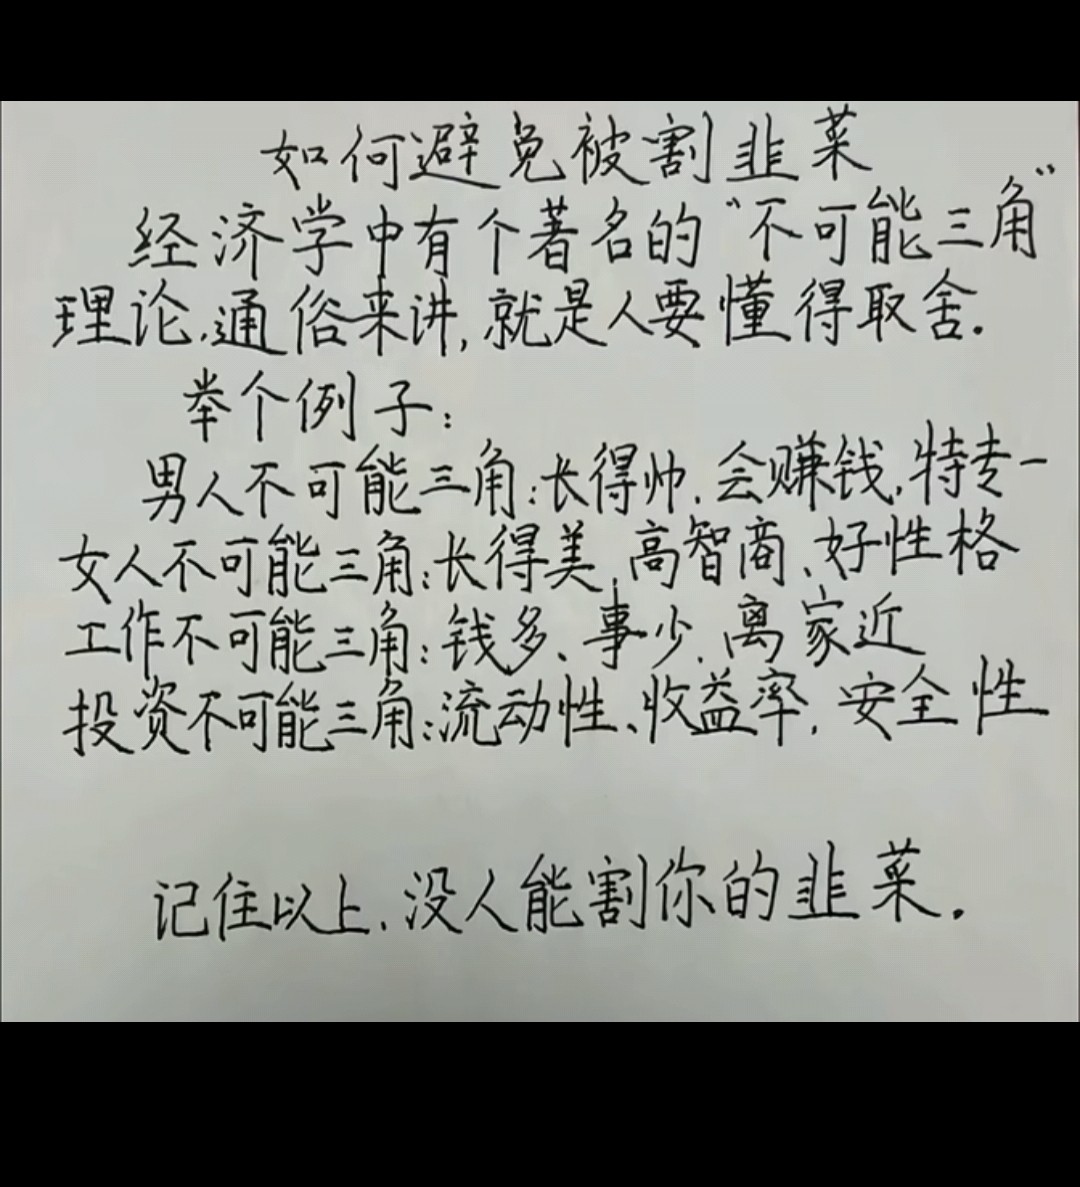 如何避免被割韭菜
经济学中有个著名的“不可能三角”
理论,通俗来讲,就是人要懂得取舍.
举个例子:
男人不可能三角:长得帅、会赚钱、特专一
女人不可能三角:长得美、高智商、好性格
工作不可能三角:钱多、事少、离家近
投资不可能三角:流动性、收益率、安全性
记住以上,没人能割你的韭菜.